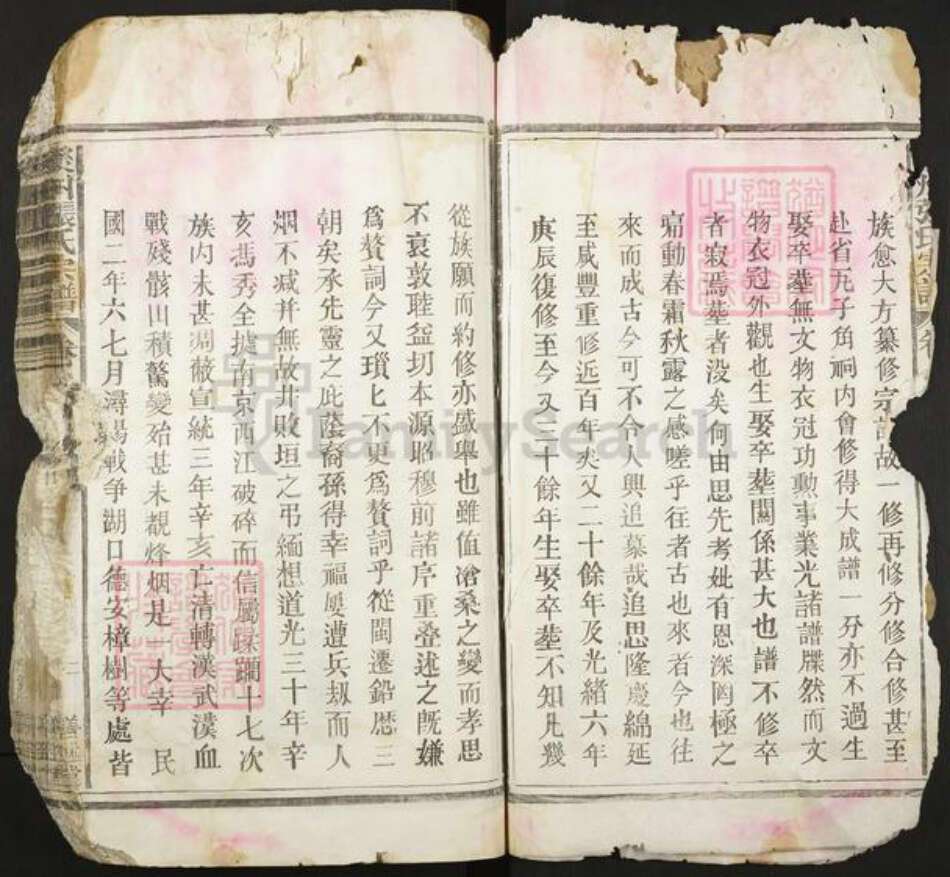 族愈大方纂修宗譜故一修再修分修合修甚至
赴省九子角祠内會修得大成譜一分亦不過生
娶卒塟無文物衣冠功勲事業光諸譜牒然而文
物衣冠外觀也生娶卒塟關係甚大也譜不修卒
者寂焉塟者没矣何由思先考妣有恩深罔極之
痛動春霜秋露之感嗟乎往者古也來者今也往
來而成古今可不令人興追慕哉追思隆慶綿延
至咸豐重修近百年矣又二十餘年及光緒六年
庚辰復修至今又三十餘年生娶卒塟不知凡幾
從族願而約修亦盛舉也雖值滄桑之變而孝思
不衰敦睦益切本源昭穆前諸序重叠述之旣嫌
爲贅詞今又瑣上不更爲贅詞乎從閩遷鉛歴三
朝矣承先靈之庇蔭裔孫得幸福屢遭兵刼而人
烟不减并無故井敗垣之弔緬想道光三十年辛
亥馮秀全據南京西江破碎而信屬蹂躪十七次
族内未甚凋敝宣統三年辛亥亡清轉漢武漢血
戰殘骸田積驚變殆甚未覩烽烟是一大幸 民
國二年六七月潯陽戰争湖口德安樟樹等處皆
張氏宗譜
張氏宗譜
FamilySearch